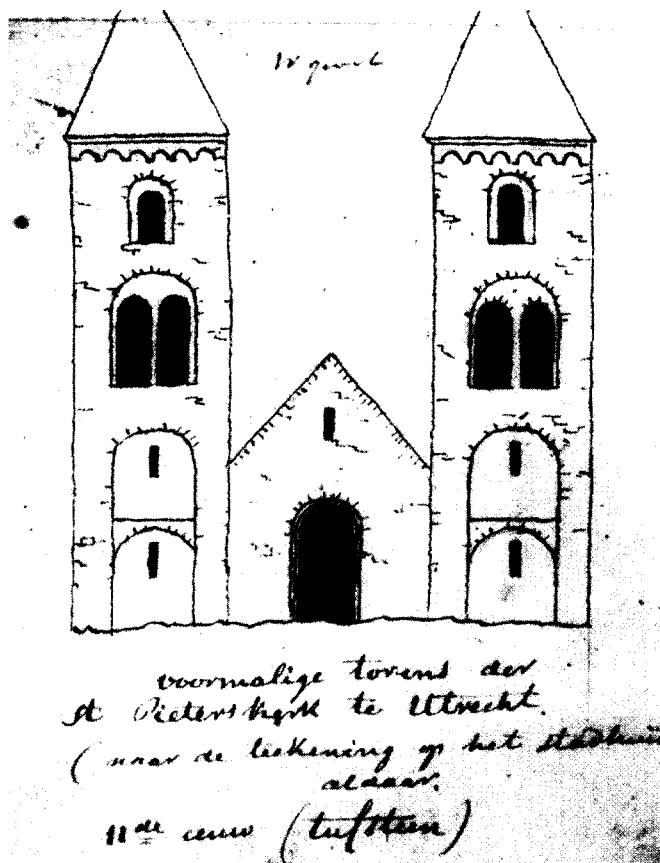 voormalige torens der
St Pieterskerk te Utrecht.
(naar de teekening op het stadhuis
aldaar.
11de eeuw (tufsteen)